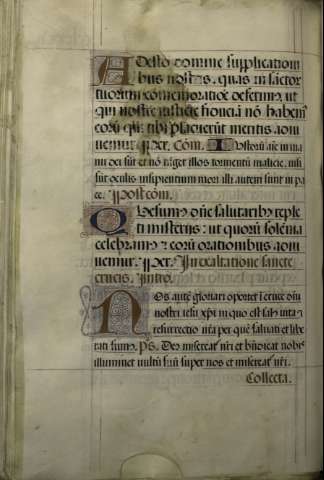 Adesto domine supplication
bus nostris, quas in sactor
tuorum comemoratioe deferimus, ut
qui nostre iusticie fiducia nō habem
eorū qui tibi placuerūt meritis adiu
uemur. Per. Cōm. Iustorū aīe in ma
nu dei sūt et nō tāget illos tormentū malicie, uisi
sūt oculis insipientium mori illi autem sunt in pa
ce. Postcōm.
Quesumus dn̄e salutaribꝰ reple
ti misteriis: ut quorū solēnia
celebramꝰ eorū orationibus adiu
uemur. Per. In exaltatione sancte
crucis. Intro.
Nos autē gloriari oportet ī cruce dn̄i
nostri iesu xp̄i in quo est salꝰ uita ⁊
resurrectio nr̄a per quē saluati et libe
rati sumꝰ. Ps. Deꝰ misereat' nr̄i et bn̄dicat nobis
illuminet uultū suū super nos et misereat' nr̄i.
Collecta.